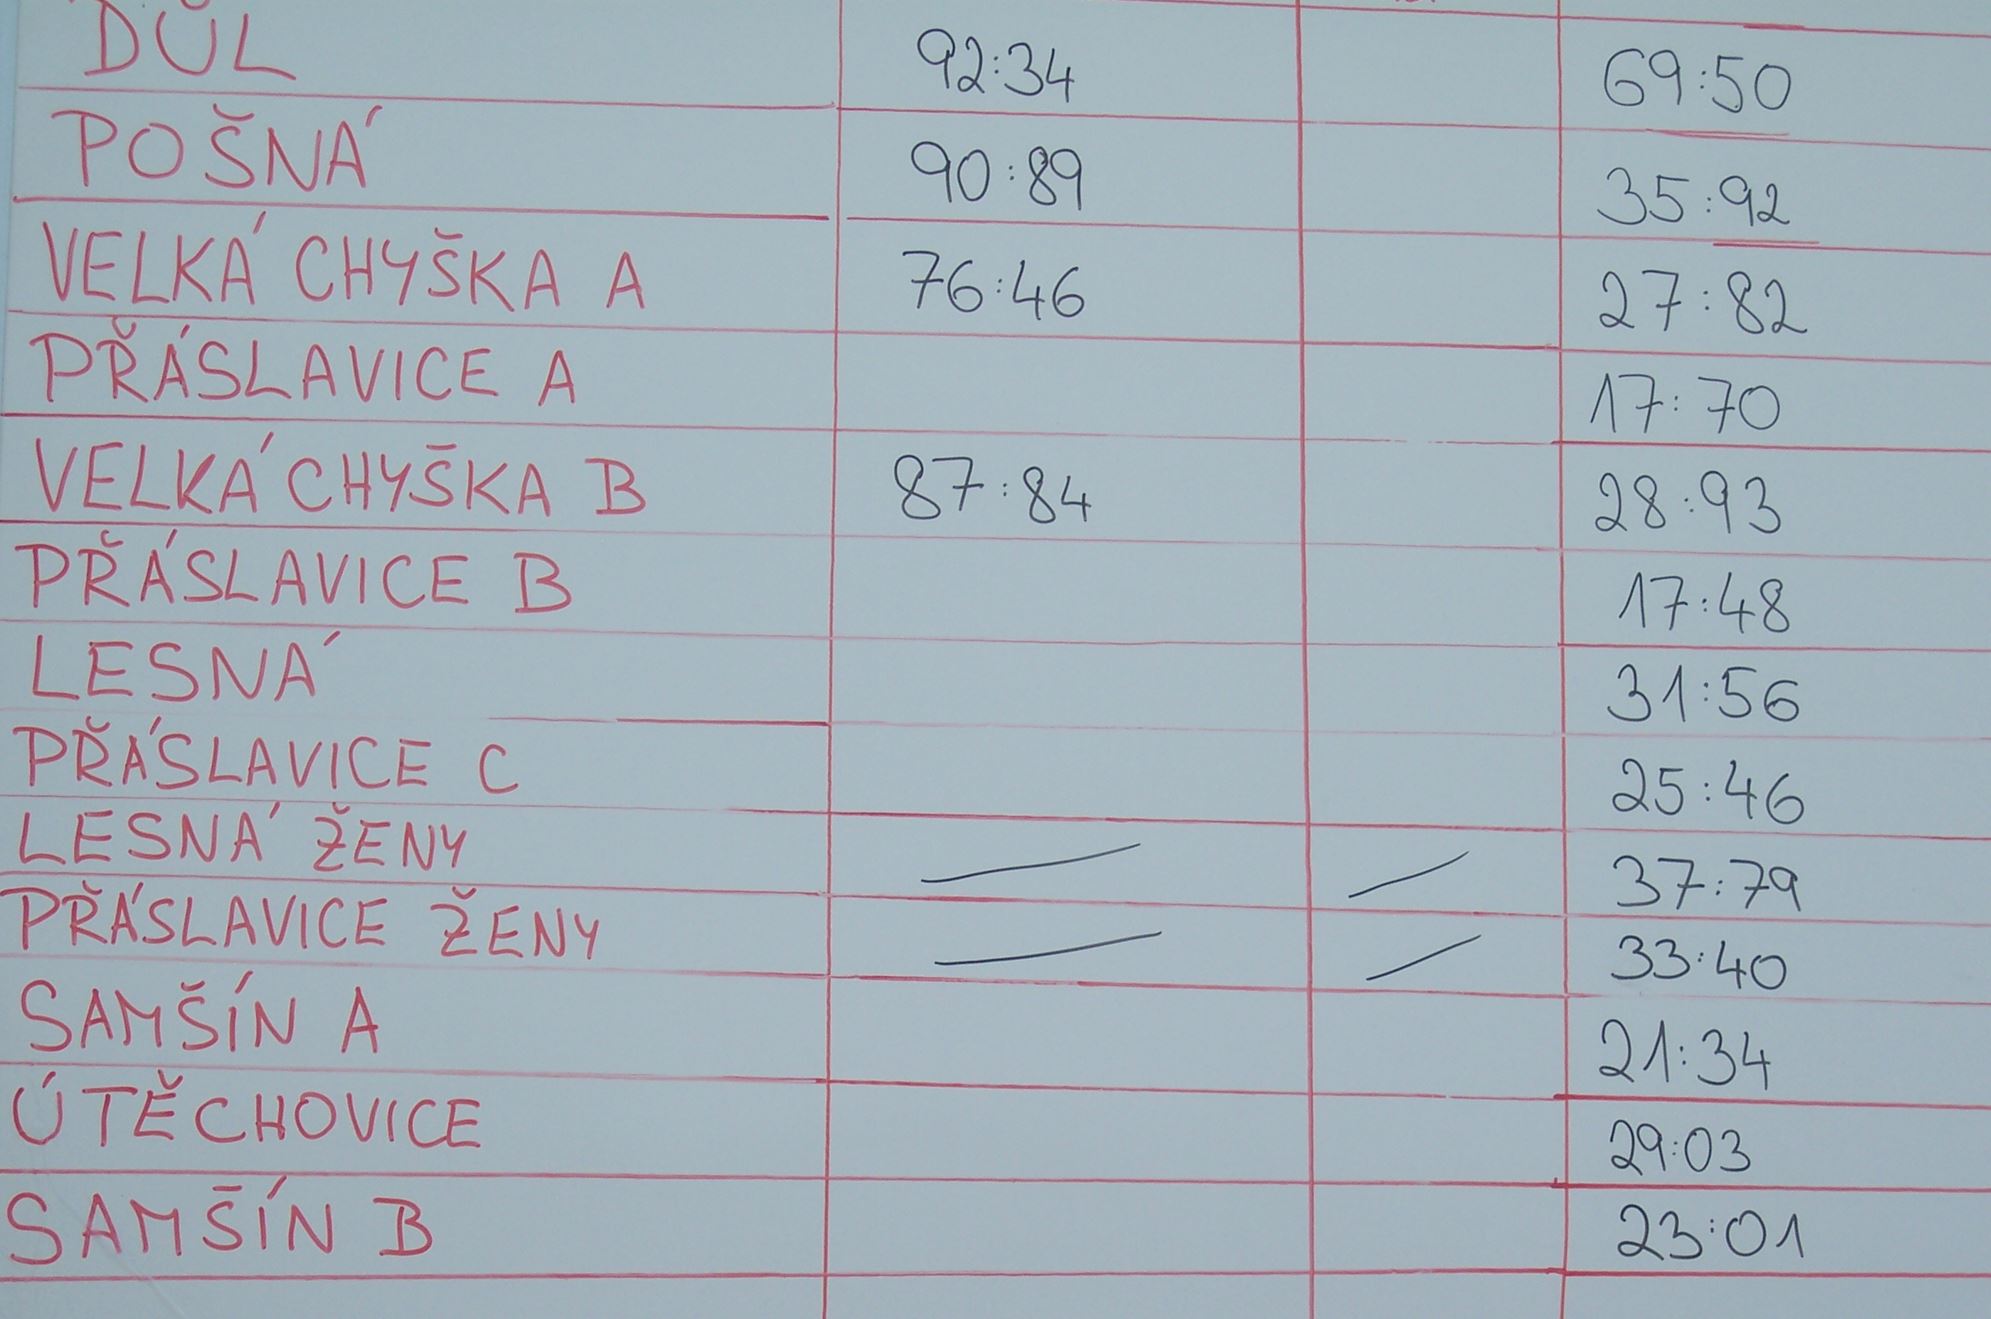 DŮL 92:34 69:50
POŠNÁ 90:89 35:92
VELKÁ CHYŠKA A 76:46 27:82
PŘÁSLAVICE A 17:70
VELKÁ CHYŠKA B 87:84 28:93
PŘÁSLAVICE B 17:48
LESNÁ 31:56
PŘÁSLAVICE C 25:46
LESNÁ ŽENY 37:79
PŘÁSLAVICE ŽENY 33:40
SAMŠÍN A 21:34
ÚTĚCHOVICE 29:03
SAMŠÍN B 23:01